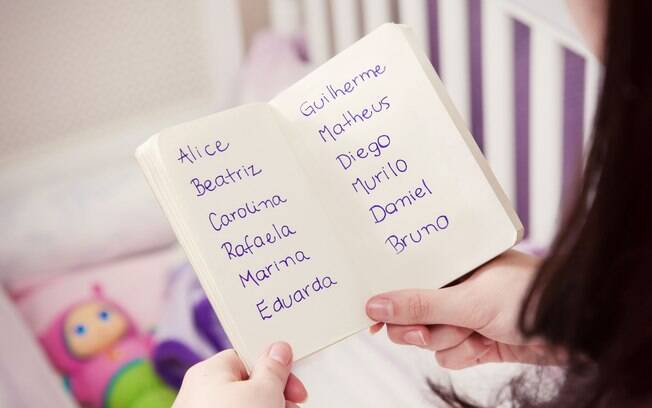 Alice
Beatriz
Carolina
Rafaela
Marina
Eduarda
Guilherme
Matheus
Diego
Murilo
Daniel
Bruno